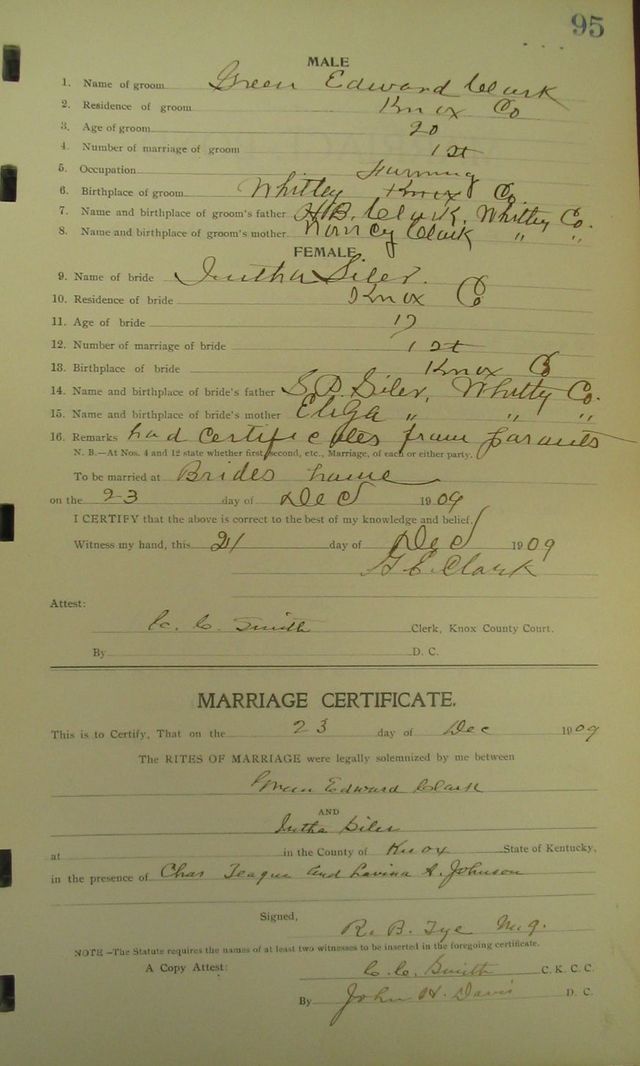 95
MALE
1. Name of groom Green Edward Clark
2. Residence of groom Knox Co
3. Age of groom 20
4. Number of marriage of groom 1st
5. Occupation Farming
6. Birthplace of groom Whitley Knox Co
7. Name and birthplace of groom's father H.B. Clark, Whitley Co.
8. Name and birthplace of groom's mother Nancy Clark " "
FEMALE
9. Name of bride Siler.
10. Residence of bride Knox Co
11. Age of bride 17
12. Number of marriage of bride 1st
13. Birthplace of bride Knox Co
14. Name and birthplace of bride's father Siler, Whitley Co.
15. Name and birthplace of bride's mother Eliza " " "
16. Remarks had certificates from parants
N. B.—At Nos. 4 and 12 state whether first, second, etc., Marriage, of each or either party.
To be married at Brides home
on the 23 day of Dec 1909
I CERTIFY that the above is correct to the best of my knowledge and belief.
Witness my hand, this 21 day of Dec 1909
G.E. Clark
Attest:
C. C. Smith Clerk, Knox County Court.
By D. C.
MARRIAGE CERTIFICATE.
This is to Certify, That on the 23 day of Dec 1909
The RITES OF MARRIAGE were legally solemnized by me between
Green Edward Clark
AND
Siler
at in the County of Knox State of Kentucky,
in the presence of Chas Teague and Lavina S. Johnson
Signed,
R. B. Tye M.G.
NOTE—The Statute requires the names of at least two witnesses to be inserted in the foregoing certificate.
A Copy Attest: C. C. Smith C. K. C. C.
By John H. Davis D. C.